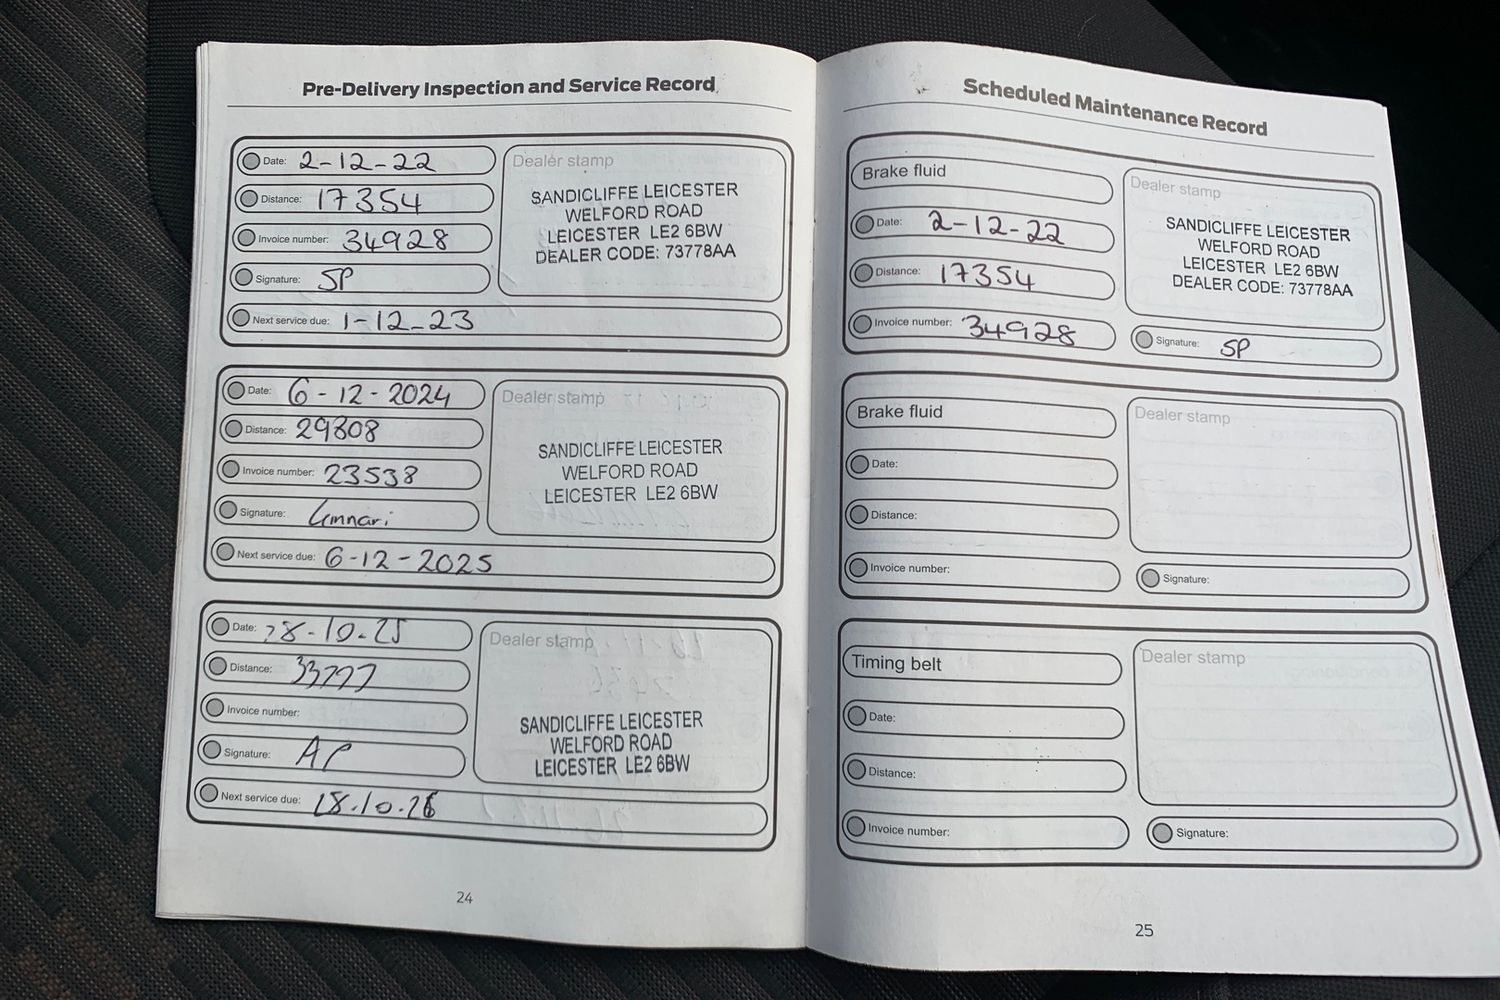 Pre-Delivery Inspection and Service Record
Date: 2-12-22
Distance: 17354
Invoice number: 34928
Signature: SP
Next service due: 1-12-23
Dealer stamp
SANDICLIFFE LEICESTER
WELFORD ROAD
LEICESTER LE2 6BW
DEALER CODE: 73778AA
Date: 6-12-2024
Distance: 29808
Invoice number: 23538
Signature:
Next service due: 6-12-2025
Dealer stamp
SANDICLIFFE LEICESTER
WELFORD ROAD
LEICESTER LE2 6BW
Date: 28-10-25
Distance: 33777
Invoice number:
Signature: AP
Next service due: 28.10.26
Dealer stamp
SANDICLIFFE LEICESTER
WELFORD ROAD
LEICESTER LE2 6BW
24
Scheduled Maintenance Record
Brake fluid
Date: 2-12-22
Distance: 17354
Invoice number: 34928
Dealer stamp
SANDICLIFFE LEICESTER
WELFORD ROAD
LEICESTER LE2 6BW
DEALER CODE: 73778AA
Signature: SP
Brake fluid
Date:
Distance:
Invoice number:
Dealer stamp
Signature:
Timing belt
Date:
Distance:
Invoice number:
Dealer stamp
Signature:
25